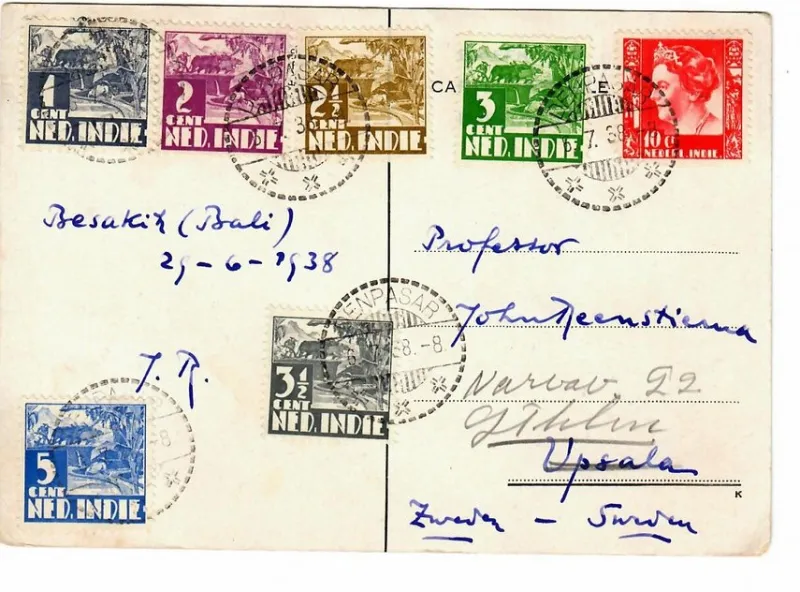 1 CENT NED. INDIE
2 CENT NED. INDIE
2½ CENT NED. INDIE
3 CENT NED. INDIE
10 CT NEDERL. INDIE
CA
LE
7. 38
Besakih (Bali)
29-6-1938
J. R.
Professor
John Reenstierna
Upsala
Zweden - Sweden
ENPASAR
38.-8.
3½ CENT NED. INDIE
5 CENT NED. INDIE
K